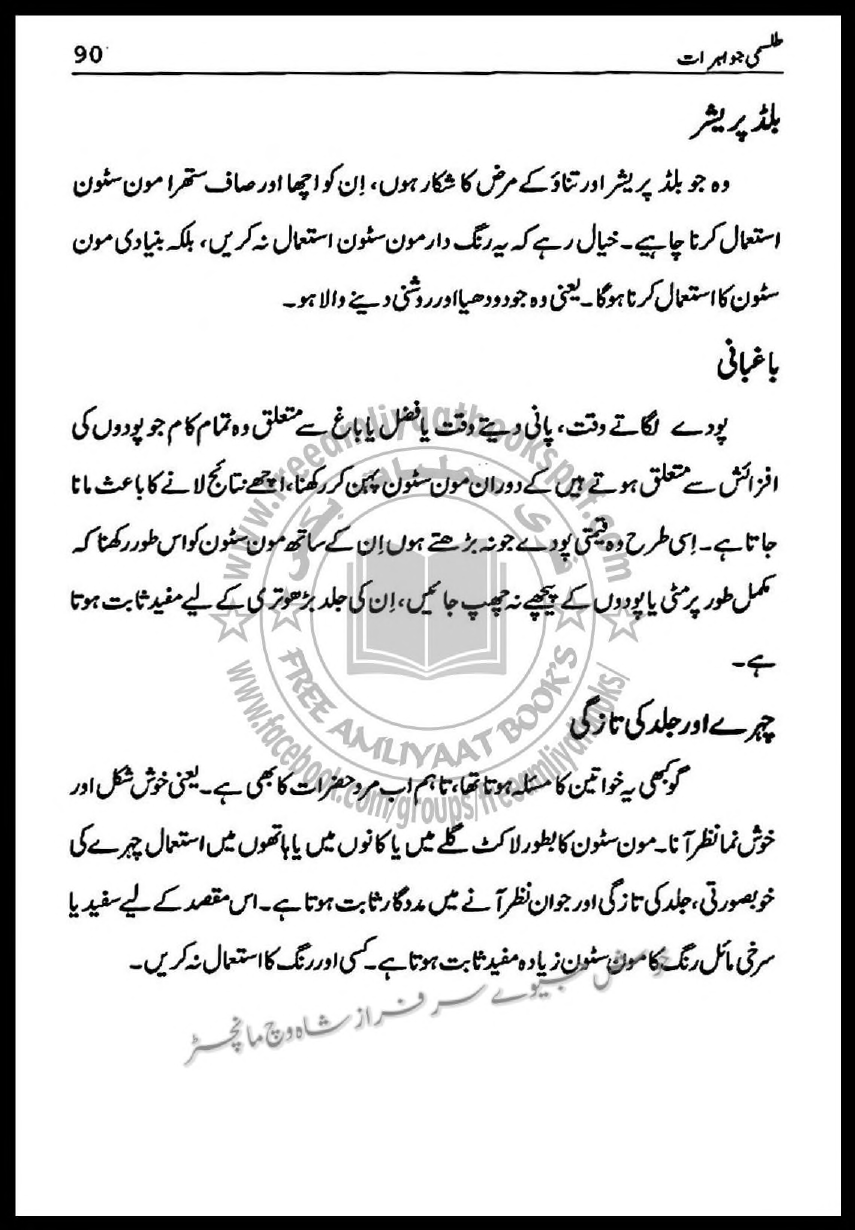 طلسمی جواہرات
90
بلڈ پریشر
وہ جو بلڈ پریشر اور تناؤ کے مرض کا شکار ہوں، اِن کو اچھا اور صاف ستھرا مون سٹون
استعمال کرنا چاہیے۔ خیال رہے کہ یہ رنگ دار مون سٹون استعمال نہ کریں، بلکہ بنیادی مون
سٹون کا استعمال کرنا ہوگا۔ یعنی وہ جو دودھیا اور روشنی دینے والا ہو۔
باغبانی
پودے لگاتے وقت، پانی دیتے وقت یا فضل یا باغ سے متعلق وہ تمام کام جو پودوں کی
افزائش سے متعلق ہوتے ہیں کے دوران مون سٹون پہن کر رکھنا، اچھے نتائج لانے کا باعث مانا
جاتا ہے۔ اِسی طرح وہ قیمتی پودے جو نہ بڑھتے ہوں اِن کے ساتھ مون سٹون کو اس طور رکھنا کہ
مکمل طور پر مٹی یا پودوں کے پیچھے نہ چھپ جائیں، اِن کی جلد بڑھوتری کے لیے مفید ثابت ہوتا
ہے۔
چہرے اور جلد کی تازگی
گو کبھی یہ خواتین کا مسئلہ ہوتا تھا، تاہم اب مرد حضرات کا بھی ہے۔ یعنی خوش شکل اور
خوش نما نظر آنا۔ مون سٹون کا بطور لاکٹ گلے میں یا کانوں میں یا ہاتھوں میں استعمال چہرے کی
خوبصورتی، جلد کی تازگی اور جوان نظر آنے میں مددگار ثابت ہوتا ہے۔ اس مقصد کے لیے سفید یا
سرخی مائل رنگ کا مون سٹون زیادہ مفید ثابت ہوتا ہے۔ کسی اور رنگ کا استعمال نہ کریں۔
www.freeamliyaatbookspdf.com
FREE AMLIYAAT BOOK'S
www.facebook.com/groups/freeamliyatbooks/
سرفراز شاہ وچ مانچسٹر